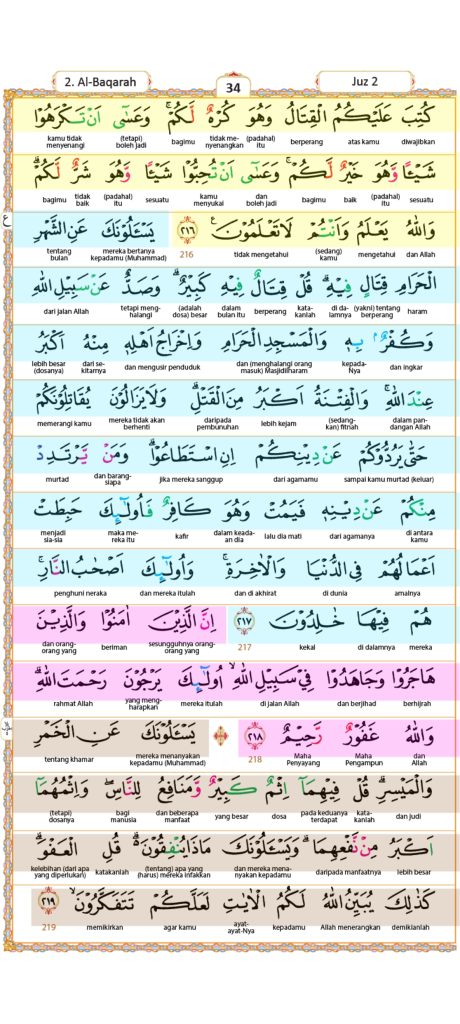 2. Al-Baqarah 34 Juz 2
كُتِبَ عَلَيْكُمُ الْقِتَالُ وَهُوَ كُرْهٌ لَّكُمْۚ وَعَسٰٓى اَنْ تَكْرَهُوْا
diwajibkan atas kamu berperang (padahal) itu tidak menyenangkan bagimu (tetapi) boleh jadi kamu tidak menyenangi
شَيْـًٔا وَّهُوَ خَيْرٌ لَّكُمْۚ وَعَسٰٓى اَنْ تُحِبُّوْا شَيْـًٔا وَّهُوَ شَرٌّ لَّكُمْۗ
sesuatu (padahal) itu baik bagimu dan boleh jadi kamu menyukai sesuatu (padahal) itu tidak baik bagimu
وَاللّٰهُ يَعْلَمُ وَاَنْتُمْ لَا تَعْلَمُوْنَ ۝٢١٦ يَسْـَٔلُوْنَكَ عَنِ الشَّهْرِ
dan Allah mengetahui (sedang) kamu tidak mengetahui 216 mereka bertanya kepadamu (Muhammad) tentang bulan
الْحَرَامِ قِتَالٍ فِيْهِۗ قُلْ قِتَالٌ فِيْهِ كَبِيْرٌۗ وَصَدٌّ عَنْ سَبِيْلِ اللّٰهِ
haram (yakni) tentang berperang di dalamnya katakanlah berperang dalam bulan itu (adalah dosa) besar tetapi menghalangi dari jalan Allah
وَكُفْرٌۢ بِهٖ وَالْمَسْجِدِ الْحَرَامِ وَاِخْرَاجُ اَهْلِهٖ مِنْهُ اَكْبَرُ
dan ingkar kepada-Nya dan (menghalangi orang masuk) Masjidilharam dan mengusir penduduk dari sekitarnya lebih besar (dosanya)
عِنْدَ اللّٰهِۚ وَالْفِتْنَةُ اَكْبَرُ مِنَ الْقَتْلِۗ وَلَا يَزَالُوْنَ يُقَاتِلُوْنَكُمْ
dalam pandangan Allah (sedangkan) fitnah lebih kejam daripada pembunuhan mereka tidak akan berhenti memerangi kamu
حَتّٰى يَرُدُّوْكُمْ عَنْ دِيْنِكُمْ اِنِ اسْتَطَاعُوْاۗ وَمَنْ يَّرْتَدِدْ
sampai kamu murtad (keluar) dari agamamu jika mereka sanggup dan barangsiapa murtad
مِنْكُمْ عَنْ دِيْنِهٖ فَيَمُتْ وَهُوَ كَافِرٌ فَاُولٰۤىِٕكَ حَبِطَتْ
di antara kamu dari agamanya lalu dia mati dalam keadaan dia kafir maka mereka itu menjadi sia-sia
اَعْمَالُهُمْ فِى الدُّنْيَا وَالْاٰخِرَةِۚ وَاُولٰۤىِٕكَ اَصْحٰبُ النَّارِۚ
amalnya di dunia dan di akhirat dan mereka itulah penghuni neraka
هُمْ فِيْهَا خٰلِدُوْنَ ۝٢١٧ اِنَّ الَّذِيْنَ اٰمَنُوْا وَالَّذِيْنَ
mereka di dalamnya kekal 217 sesungguhnya orang-orang yang beriman dan orang-orang yang
هَاجَرُوْا وَجَاهَدُوْا فِيْ سَبِيْلِ اللّٰهِۙ اُولٰۤىِٕكَ يَرْجُوْنَ رَحْمَتَ اللّٰهِۗ
berhijrah dan berjihad di jalan Allah mereka itulah yang mengharapkan rahmat Allah
وَاللّٰهُ غَفُوْرٌ رَّحِيْمٌ ۝٢١٨ يَسْـَٔلُوْنَكَ عَنِ الْخَمْرِ
dan Allah Maha Pengampun Maha Penyayang 218 mereka menanyakan kepadamu (Muhammad) tentang khamar
وَالْمَيْسِرِۗ قُلْ فِيْهِمَآ اِثْمٌ كَبِيْرٌ وَّمَنَافِعُ لِلنَّاسِۖ وَاِثْمُهُمَآ
dan judi katakanlah pada keduanya terdapat dosa yang besar dan beberapa manfaat bagi manusia (tetapi) dosanya
اَكْبَرُ مِنْ نَّفْعِهِمَاۗ وَيَسْـَٔلُوْنَكَ مَاذَا يُنْفِقُوْنَۗ قُلِ الْعَفْوَۗ
lebih besar daripada manfaatnya dan mereka menanyakan kepadamu (tentang) apa yang (harus) mereka infakkan katakanlah kelebihan (dari apa yang diperlukan)
كَذٰلِكَ يُبَيِّنُ اللّٰهُ لَكُمُ الْاٰيٰتِ لَعَلَّكُمْ تَتَفَكَّرُوْنَۙ ۝٢١٩
demikianlah Allah menerangkan kepadamu ayat-ayat-Nya agar kamu memikirkan 219